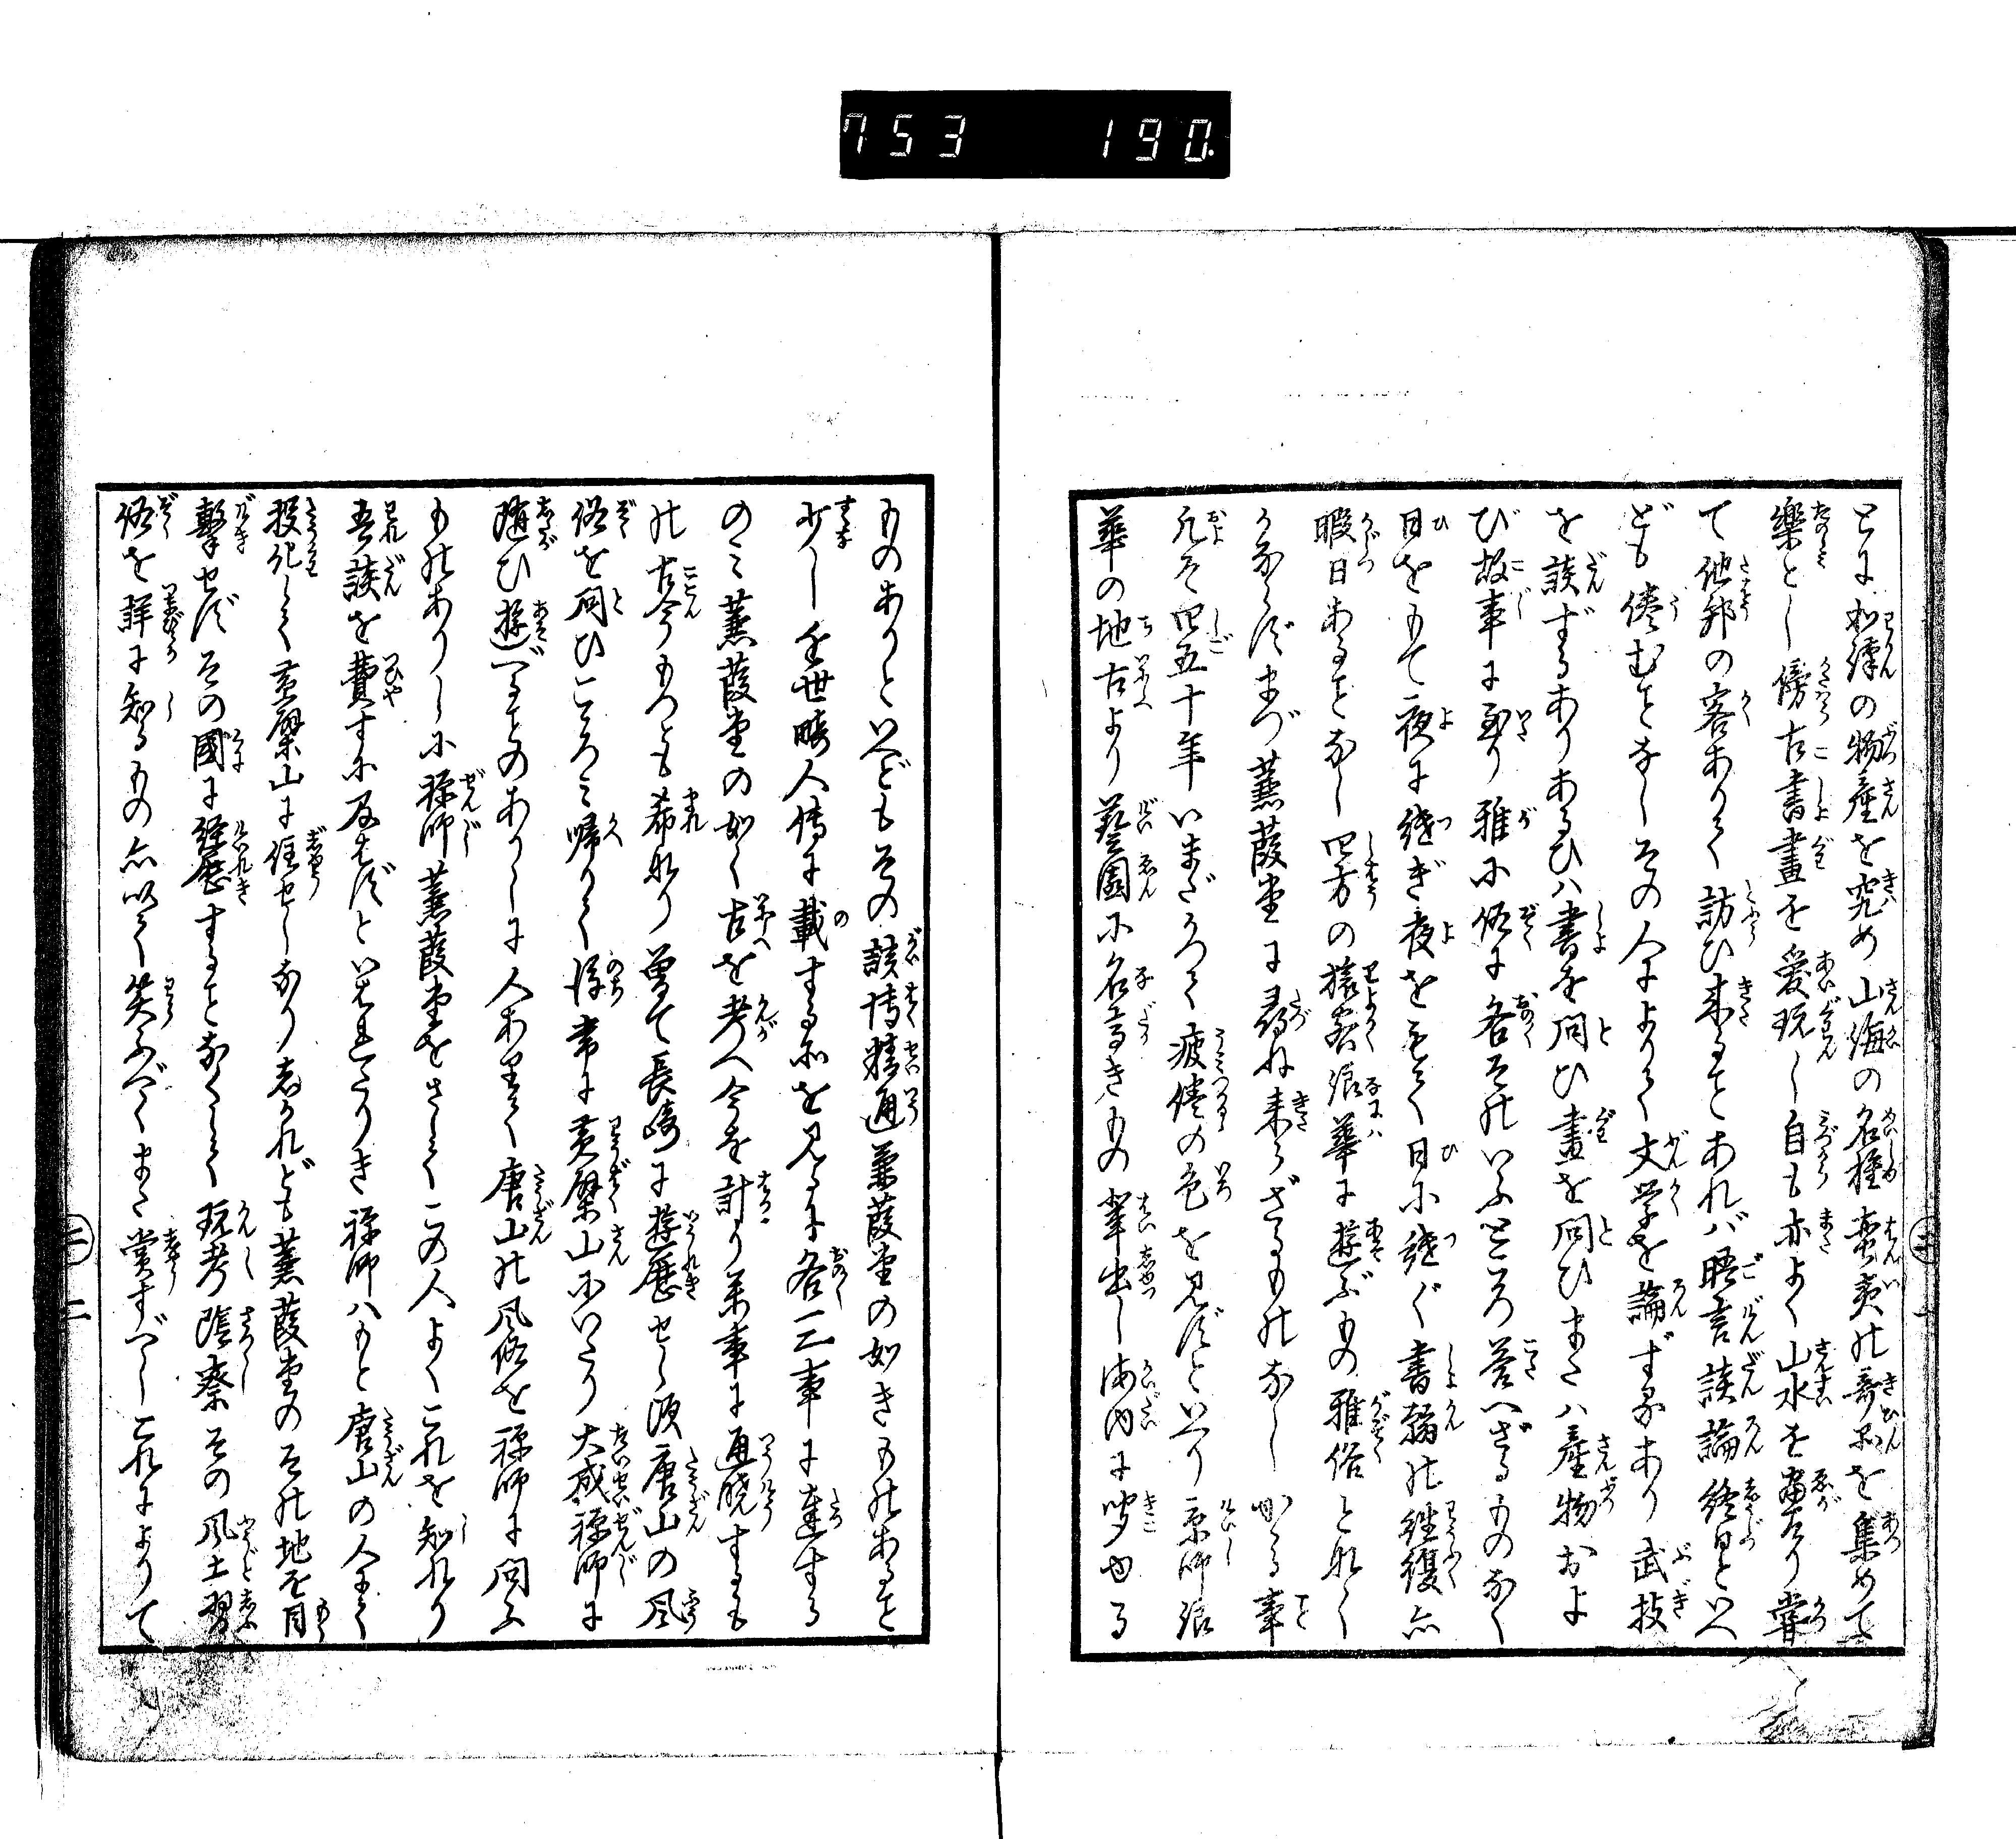 753 190.
とに和漢の物産を究め山海の名種蛮夷の奇品を集めて
樂とし傍古書畫を愛玩し自も亦よく山水を畫けり嘗
て他邦の客ありて訪ひ来ることあれバ晤言談論終日といへ
ども倦むことなしその人によりて文学を論ずるあり武技
を談ずるありあるひハ書を問ひ畫を問ひまたハ産物およ
び故事に至り雅に俗に各その いふところ答へざるものなく
日をもて夜に継ぎ夜をもて日に継ぐ書翰の往復亦
暇日あることなし四方の旅客浪華に遊ぶもの雅俗となく
かならずまづ蒹葭堂に尋ね来らざるものなしかゝる事
凡そ四五十年いまだかつて疲倦の色を見ずといへり京師浪
華の地古より藝園に名高きもの輩出し海内に聞ゆる
三 一
ものありといへどもその該博精通蒹葭堂の如きものあること
少し近世畸人傳に載する所を見るに各一二事に達する
のミ蒹葭堂の如く古を考へ今を計り萬事に通暁するも
の古今もつとも希なり曽て長崎に遊歴せし頃唐山の風
俗を問ひこゝろミ帰りて後常に黄檗山にいたり大成禅師に
随ひ遊べることのありしに人ありて唐山の風俗を禅師に問ふ
ものありしに禅師蒹葭堂をさしてこの人よくこれを知れり
吾談を費すに及ばずといはれたりき禅師ハもと唐山の人にて
投化して黄檗山に住せしなりしかれども蒹葭堂のその地を目
撃せずその國に経歴することなくして玩考隲察その風土習
俗を詳に知るもの亦以て笑ふべくまた賞すべしこれによりて
三 二